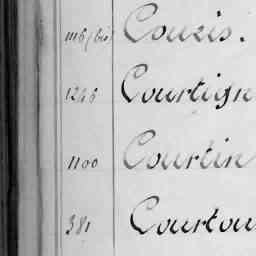 1116 (bis) Couzis.
1246 Courtign
1100 Courtin
381 Courtou